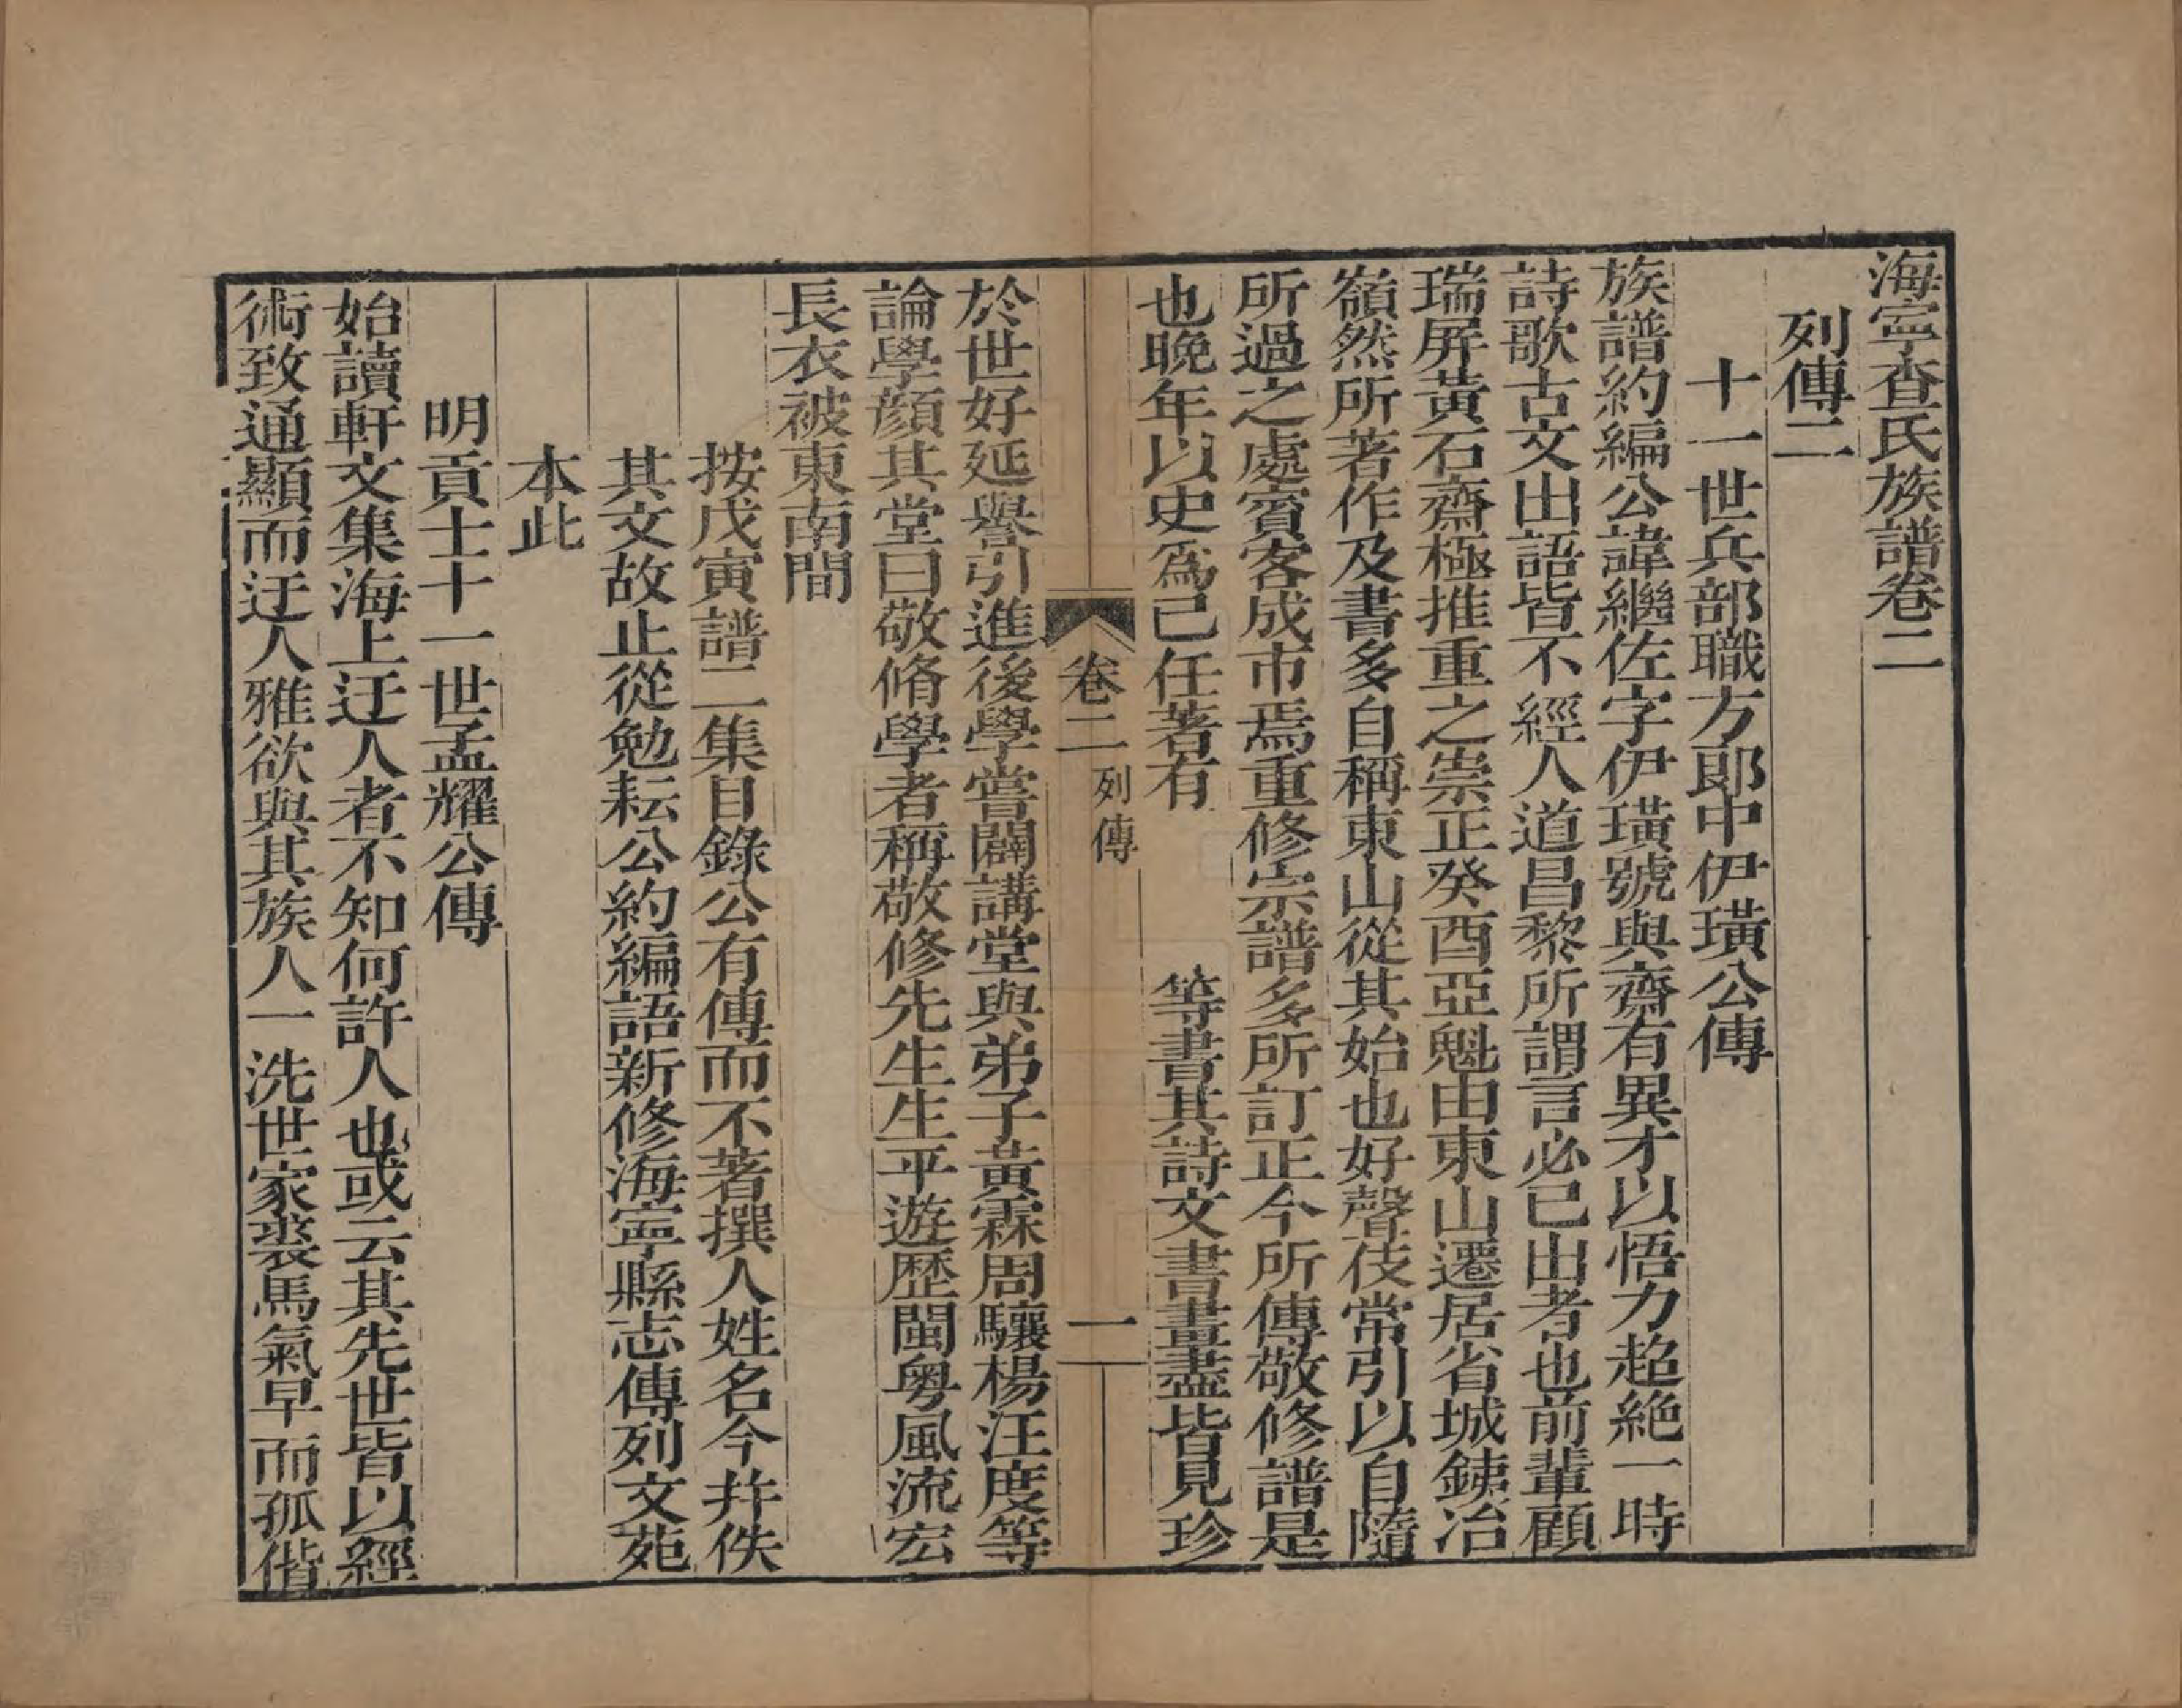 海寧查氏族譜卷二
列傳二
十一世兵部職方郎中伊璜公傳
族譜約編公諱繼佐字伊璜號與齋有異才以悟力超絶一時
詩歌古文出語皆不經人道昌黎所謂言必已出者也前輩顧
瑞屏黃石齋極推重之崇正癸酉亞魁由東山遷居省城銕冶
嶺然所著作及書多自稱東山從其始也好聲伎常引以自隨
所過之處賓客成市焉重修宗譜多所訂正今所傳敬修譜是
也晚年以史爲已任著有　　等書其詩文書畫盡皆見珍
卷二 列傳 一
於世好延譽引進後學嘗闢講堂與弟子黃霖周驤楊汪度等
論學顔其堂曰敬脩學者稱敬修先生生平遊歷閩粵風流宏
長衣被東南間
按戊寅譜二集目錄公有傳而不著撰人姓名今并佚
其文故止從勉耘公約編語新修海寧縣志傳列文苑
本此
明貢士十一世孟耀公傳
始讀軒文集海上迂人者不知何許人也或云其先世皆以經
術致通顯而迂人雅欲與其族人一洗世家裘馬氣早而孤偕